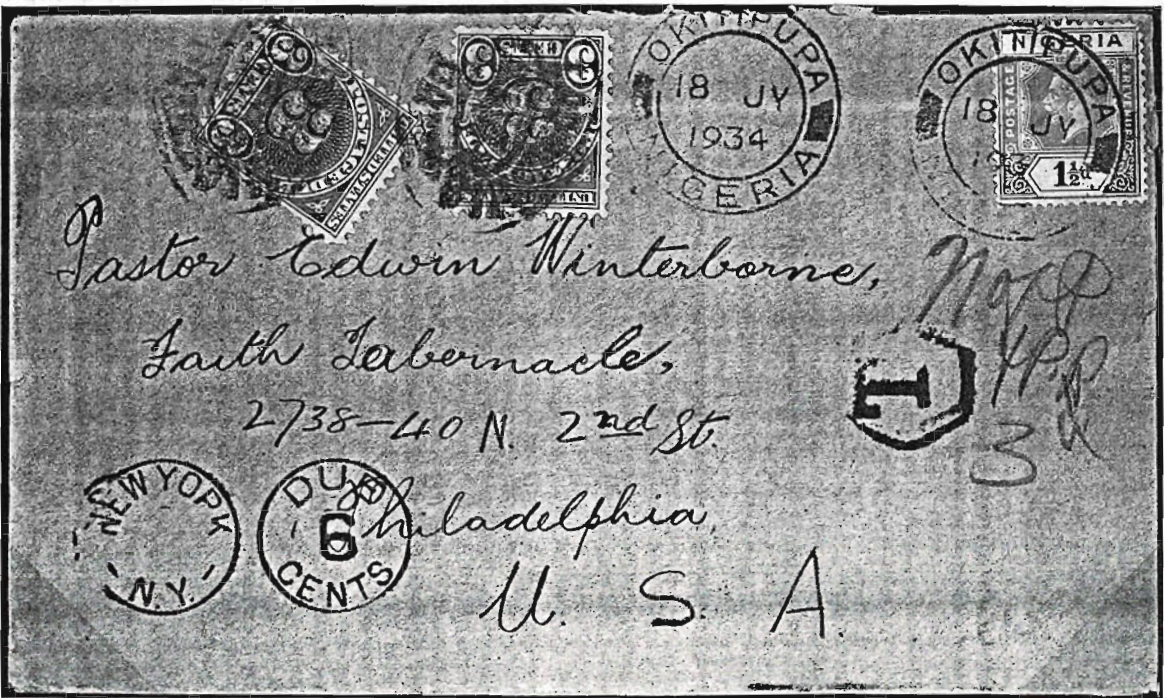 3 CENTS 3 POSTAGE DUE UNITED STATES
3 3
OKITIPUPA
18 JY
1934
NIGERIA
OKITIPUPA
18 JY
NIGERIA
POSTAGE REVENUE
1½d
Pastor Edwin Winterborne,
Faith Tabernacle,
2738-40 N. 2nd St.
Philadelphia
U. S. A.
T
3
NEW YORK
N.Y.
DUE
6
CENTS